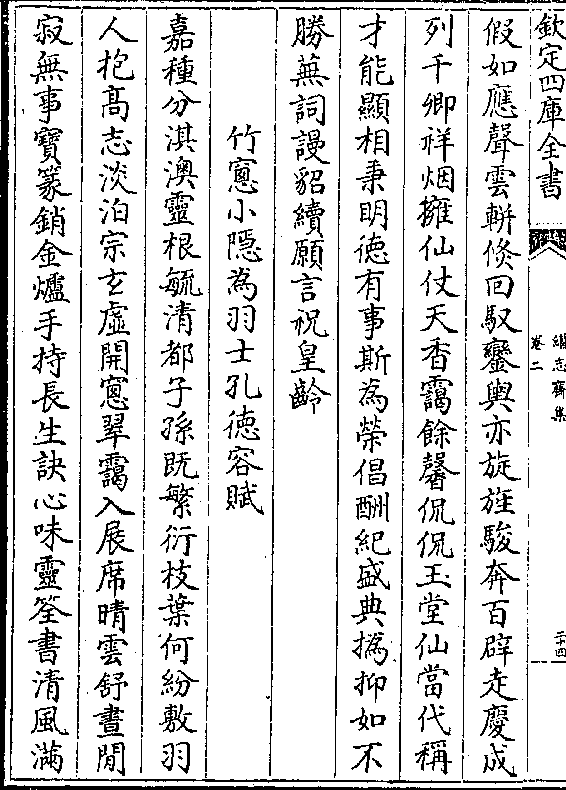 欽定四庫全書
繼志齋集
卷二
二十四
假如應聲雲輧倐回馭鑾輿亦旋旌駿奔百辟走慶成
列千卿祥烟擁仙仗天香靄餘馨侃侃玉堂仙當代稱
才能顯相秉明德有事斯為榮倡酬紀盛典撝抑如不
勝蕪詞謾貂續願言祝皇齡
竹窻小隱為羽士孔德容賦
嘉種分淇澳靈根毓清都子孫既繁衍枝葉何紛敷羽
人抱髙志淡泊宗玄虛開窻翠靄入展席晴雲舒晝閒
寂無事寶篆銷金爐手持長生訣心味靈筌書清風滿